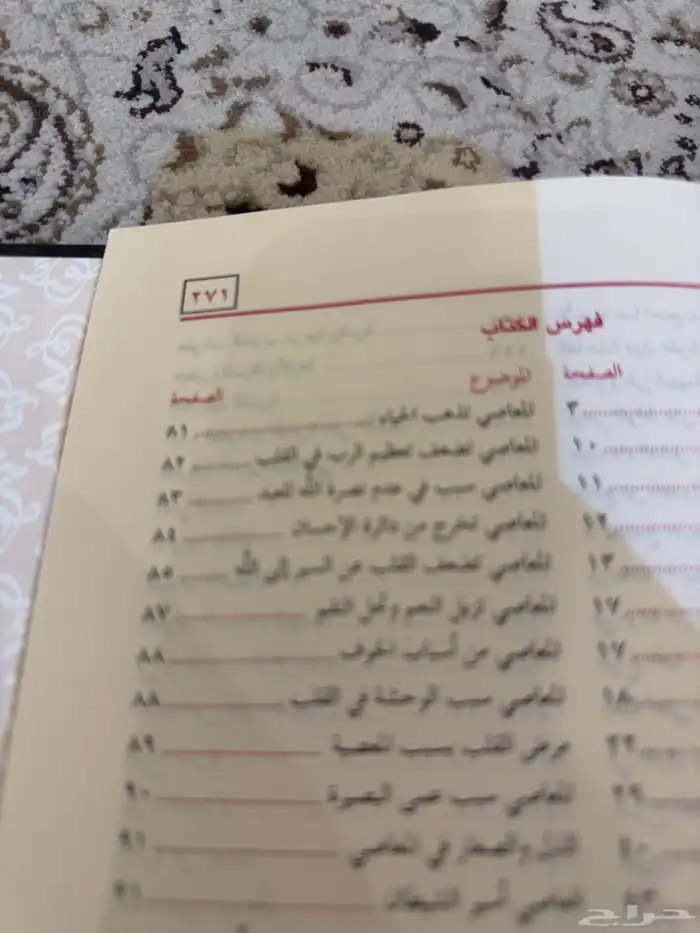 ٢٧١
فهرس الكتاب
الموضوع الصفحة
المعاصي تذهب الحياء ٨١
المعاصي تضعف تعظيم الرب في القلب ٨٢
المعاصي سبب في عدم نصرة الله للعبد ٨٣
المعاصي تخرج من دائرة الإحسان ٨٤
المعاصي تضعف القلب عن السير إلى الله ٨٥
المعاصي تزيل النعم وتحل النقم ٨٧
المعاصي من أسباب الخوف ٨٨
المعاصي سبب الوحشة في القلب ٨٨
مرض القلب بسبب المعصية ٨٩
المعاصي سبب عمى البصيرة ٩٠
الذل والصغار في المعاصي ٩١
العاصي أسير الشيطان ٩١
الصفحة
٣
١٠
١١
١٢
١٣
١٧
١٧
١٨
٢٢
٢٩
٤٠
حراج